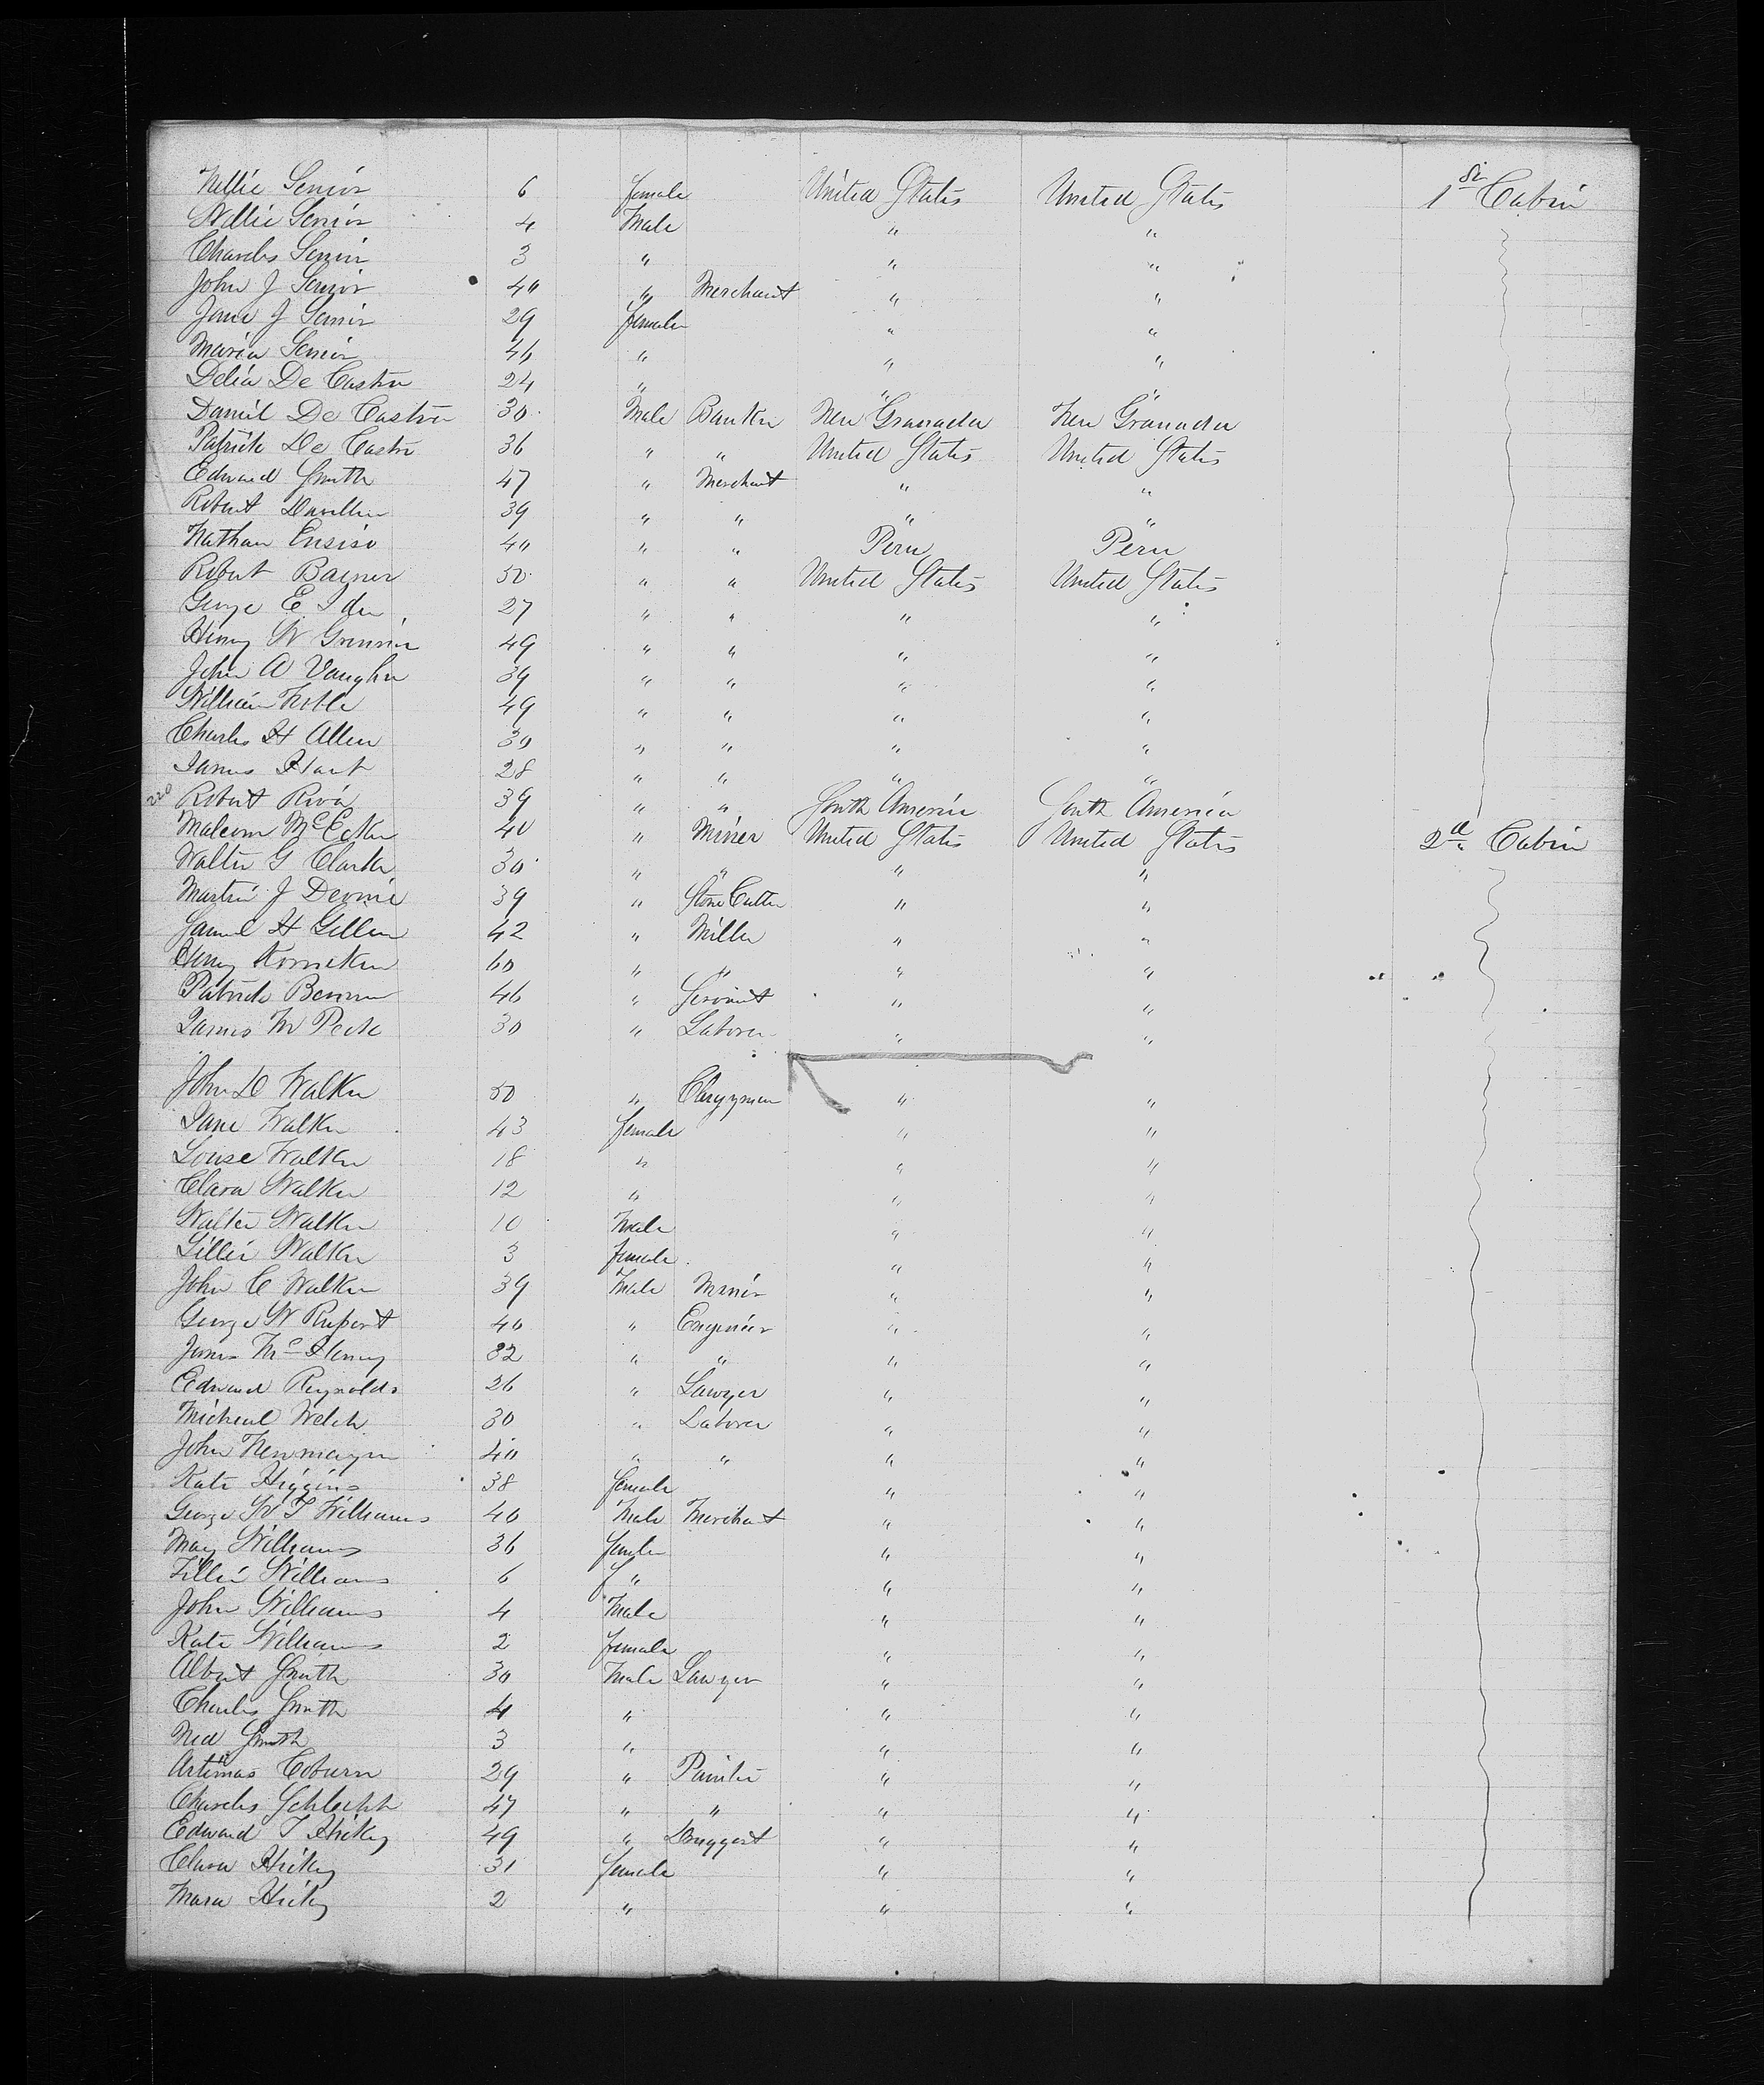 Nellie Senior 6 female United States United States 1st Cabin
Willie Senior 4 Male " "
Charles Senior 3 " " "
John J Senior 40 " Merchant " "
Jane J Senior 29 female " "
Maria Senior 46 " " "
Delia De Castro 24 " " "
Daniel De Castro 30 Male Banker New Granada New Granada
Patrick De Castro 36 " " United States United States
Edward Smith 47 " Merchant " "
Robert 39 " " " "
Nathan Ensiso 40 " " Peru Peru
Robert Bainer 50 " " United States United States
George E Iden 27 " " " "
Henry W 49 " " " "
John A Vaughn 39 " " " "
William Noble 49 " " " "
Charles H Allen 30 " " " "
James Hart 28 " " " "
220 Robert Riva 39 " " South America South America
Malcom McEcken 40 " Miner United States United States 2d Cabin
Walter G Clarke 30 " " " "
Martin J Devine 39 " Stone Cutter " "
Samuel H Gillen 42 " Miller " "
Henry 60 " " " "
Patrick 46 " Servant " "
James M Peck 30 " Laborer " "
John D Walker 50 " Clergyman " "
Jane Walker 43 female " "
Louise Walker 18 " " "
Clara Walker 12 " " "
Walter Walker 10 Male " "
Lillie Walker 3 female " "
John C Walker 39 Male Miner " "
George W Rupert 40 " Engineer " "
James McHenry 32 " " " "
Edward Reynolds 26 " Lawyer " "
Micheal Welch 30 " Laborer " "
John Newmayer 40 " " " "
Kate Higgins 38 female " "
George W T Williams 40 Male Merchant " "
May Williams 36 female " "
Tillie Williams 6 " " "
John Williams 4 Male " "
Kate Williams 2 female " "
Albert Smith 30 Male Lawyer " "
Charles Smith 4 " " "
Ned Smith 3 " " "
Artimas Coburn 29 " Painter " "
Charles Schlecht 47 " " " "
Edward T Hickey 49 " Druggest " "
Clara Hickey 31 female " "
Mara Hickey 2 " " "